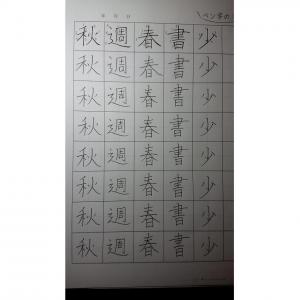 年 月 日
ペン字の
秋 週 春 書 少
秋 週 春 書 少
秋 週 春 書 少
秋 週 春 書 少
秋 週 春 書 少
秋 週 春 書 少
秋 週 春 書 少
秋 週 春 書 少